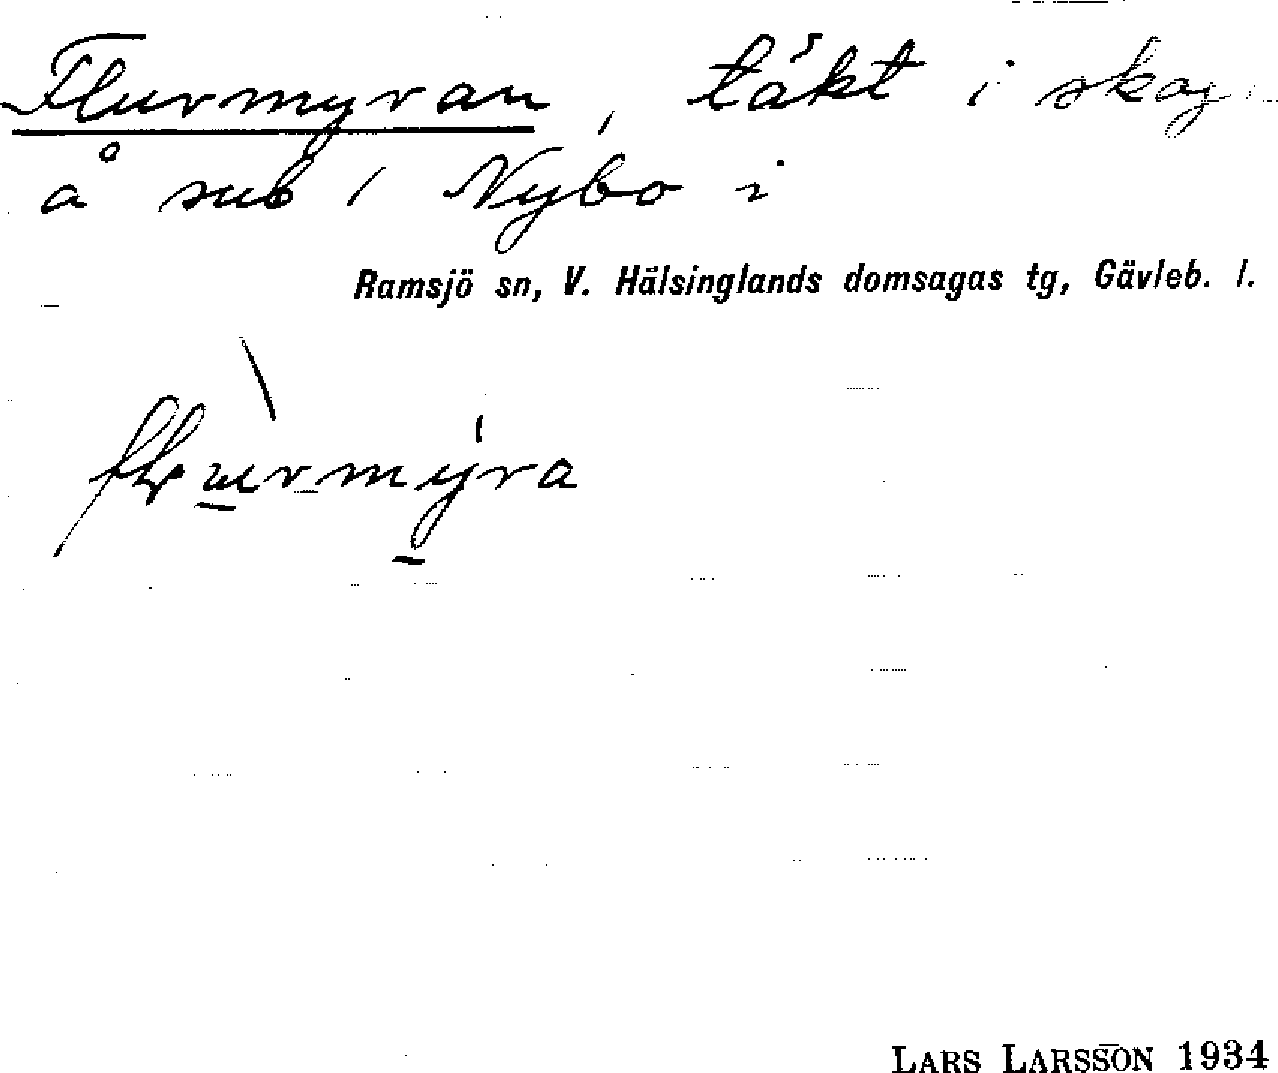 Flurmyran, täkt i skog
å sub 1 Nybo i
Ramsjö sn, V. Hälsinglands domsagas tg, Gävleb. l.
LARS LARSSON 1934